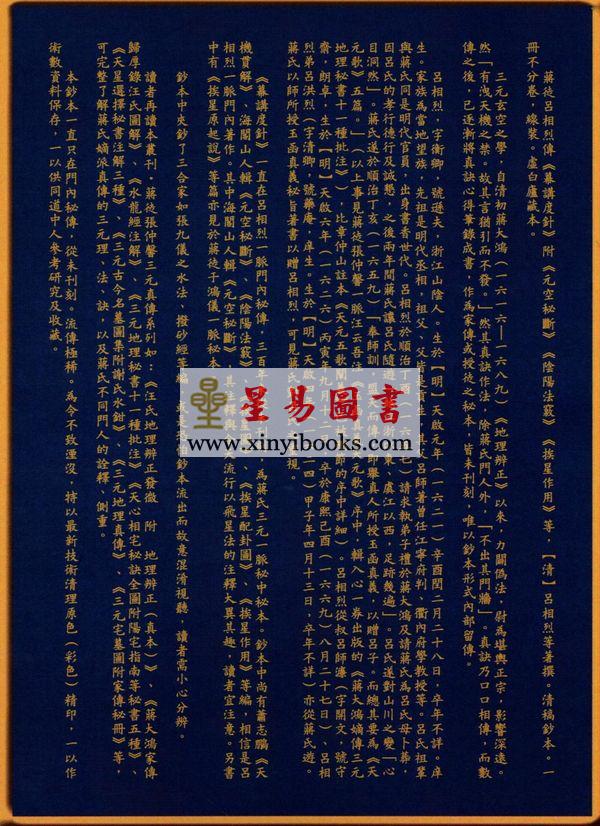 蔣徒呂相烈傳《幕講度針》附《元空秘斷》《陰陽法竅》《挨星作用》等，【清】呂相烈等著撰。清稿鈔本。一
冊不分卷，線裝。虛白廬藏本。
三元玄空之學，自清初蔣大鴻（一六一六—一六八九）《地理辨正》以來，力闢偽法，尉為堪輿正宗，影響深遠。
然「有洩天機之禁。故其言猶引而不發。」然其真訣作法，除蔣氏門人外，「不出其門牆」。真訣乃口口相傳，而數
傳之後，已逐漸將真訣心得筆錄成書，作為家傳或授徒之秘本，皆未刊刻，唯以鈔本形式內部留傳。
呂相烈，字衡卿，號遜夫，浙江山陰人。生於【明】天啟元年（一六二一）辛酉閏二月二十八日，卒年不詳。庠
生。家族為當地望族，先祖是明代丞相，祖父、父皆是貢生，其
呂師著曾任江寧府判、衢內府學教授等。呂氏祖輩
與蔣氏同是明代官員，出身書香世代。呂相烈於順治丁酉
請求執弟子禮於蔣大鴻及請蔣氏為呂氏母卜葬，
因呂氏的孝行德行及誠懇，之後兩年間蔣氏讓呂氏隨遊
浙
東、虞江以西，足跡幾遍」。呂氏遂對山川之變「心
目洞然」。蔣氏遂於順治丁亥（一六五九）「奉師訓，盟天而傳
即舉真人所授玉函真義，以贈呂子。而總其要為《天
元歌》五篇。」（以上事見蔣徒張仲馨一脈汪云吾注《
真
元歌》序中，輯入心一券出版的《蔣大鴻嫡傳三元
地理秘書十一種批注》），比章仲山註本《天元五歌闡義》
師的序中詳細）。呂相烈從叔呂師濂（字闇文，號守
齋，朗卓，生於【明】天啟六年（一六二六）丙寅年九月十二
卒於康熙己酉（一六六九）八月二十七日）、呂相
烈弟呂洪烈（字清卿，號藥庵，庠生。生於【明】天啟四年
二四）甲子年四月十三日，卒年不詳）亦從蔣氏遊。
蔣氏以師所授玉函真義秘旨著書以贈呂相烈，可見蔣氏
視。
《幕講度針》一直在呂相烈一脈門內秘傳，三百年
刊
為蔣氏三元一脈秘中秘本。鈔本中尚有蕭志鵬《天
機貫解》、海閣山人輯《元空秘斷》、《陰陽法竅》、
《挨星配卦圖》、《挨星作用》等編，相信是呂
相烈一脈門內著作。其中海閣山人輯《元空秘斷》，其注釋與
天流行以飛星法的注釋大異其趣，讀者宜注意。另書
中有《挨星原起說》等篇亦見於蔣徒于鴻儀一脈秘本
鈔本中夾鈔了三合家如張九儀之水法、撥砂經等編，或是
鈔本流出而故意混淆視聽，讀者需小心分辨。
讀者再讀本叢刊。蔣徒張仲馨三元真傳系列如：《汪氏地理辨正發微 附 地理辨正（真本）》、《蔣大鴻家傳
歸厚錄汪氏圖解》、《水龍經注解》、《三元地理秘書十一種批注》《天心相宅秘訣全圖附陽宅指南等秘書五種》、
《天星選擇秘書注解三種》、《三元古今名墓圖集附謝氏水鉗》、《三元地理真傳》、《三元宅墓圖附家傳秘冊》等，
可完整了解蔣氏嫡派真傳的三元理、法、訣，以及蔣氏不同門人的詮釋、側重。
本鈔本一直只在門內秘傳，從未刊刻。流傳極稀。為令不致湮沒，特以最新技術清理原色（彩色）精印，一以作
術數資料保存，一以供同道中人參考研究及收藏。
星易圖書
www.xinyibooks.com